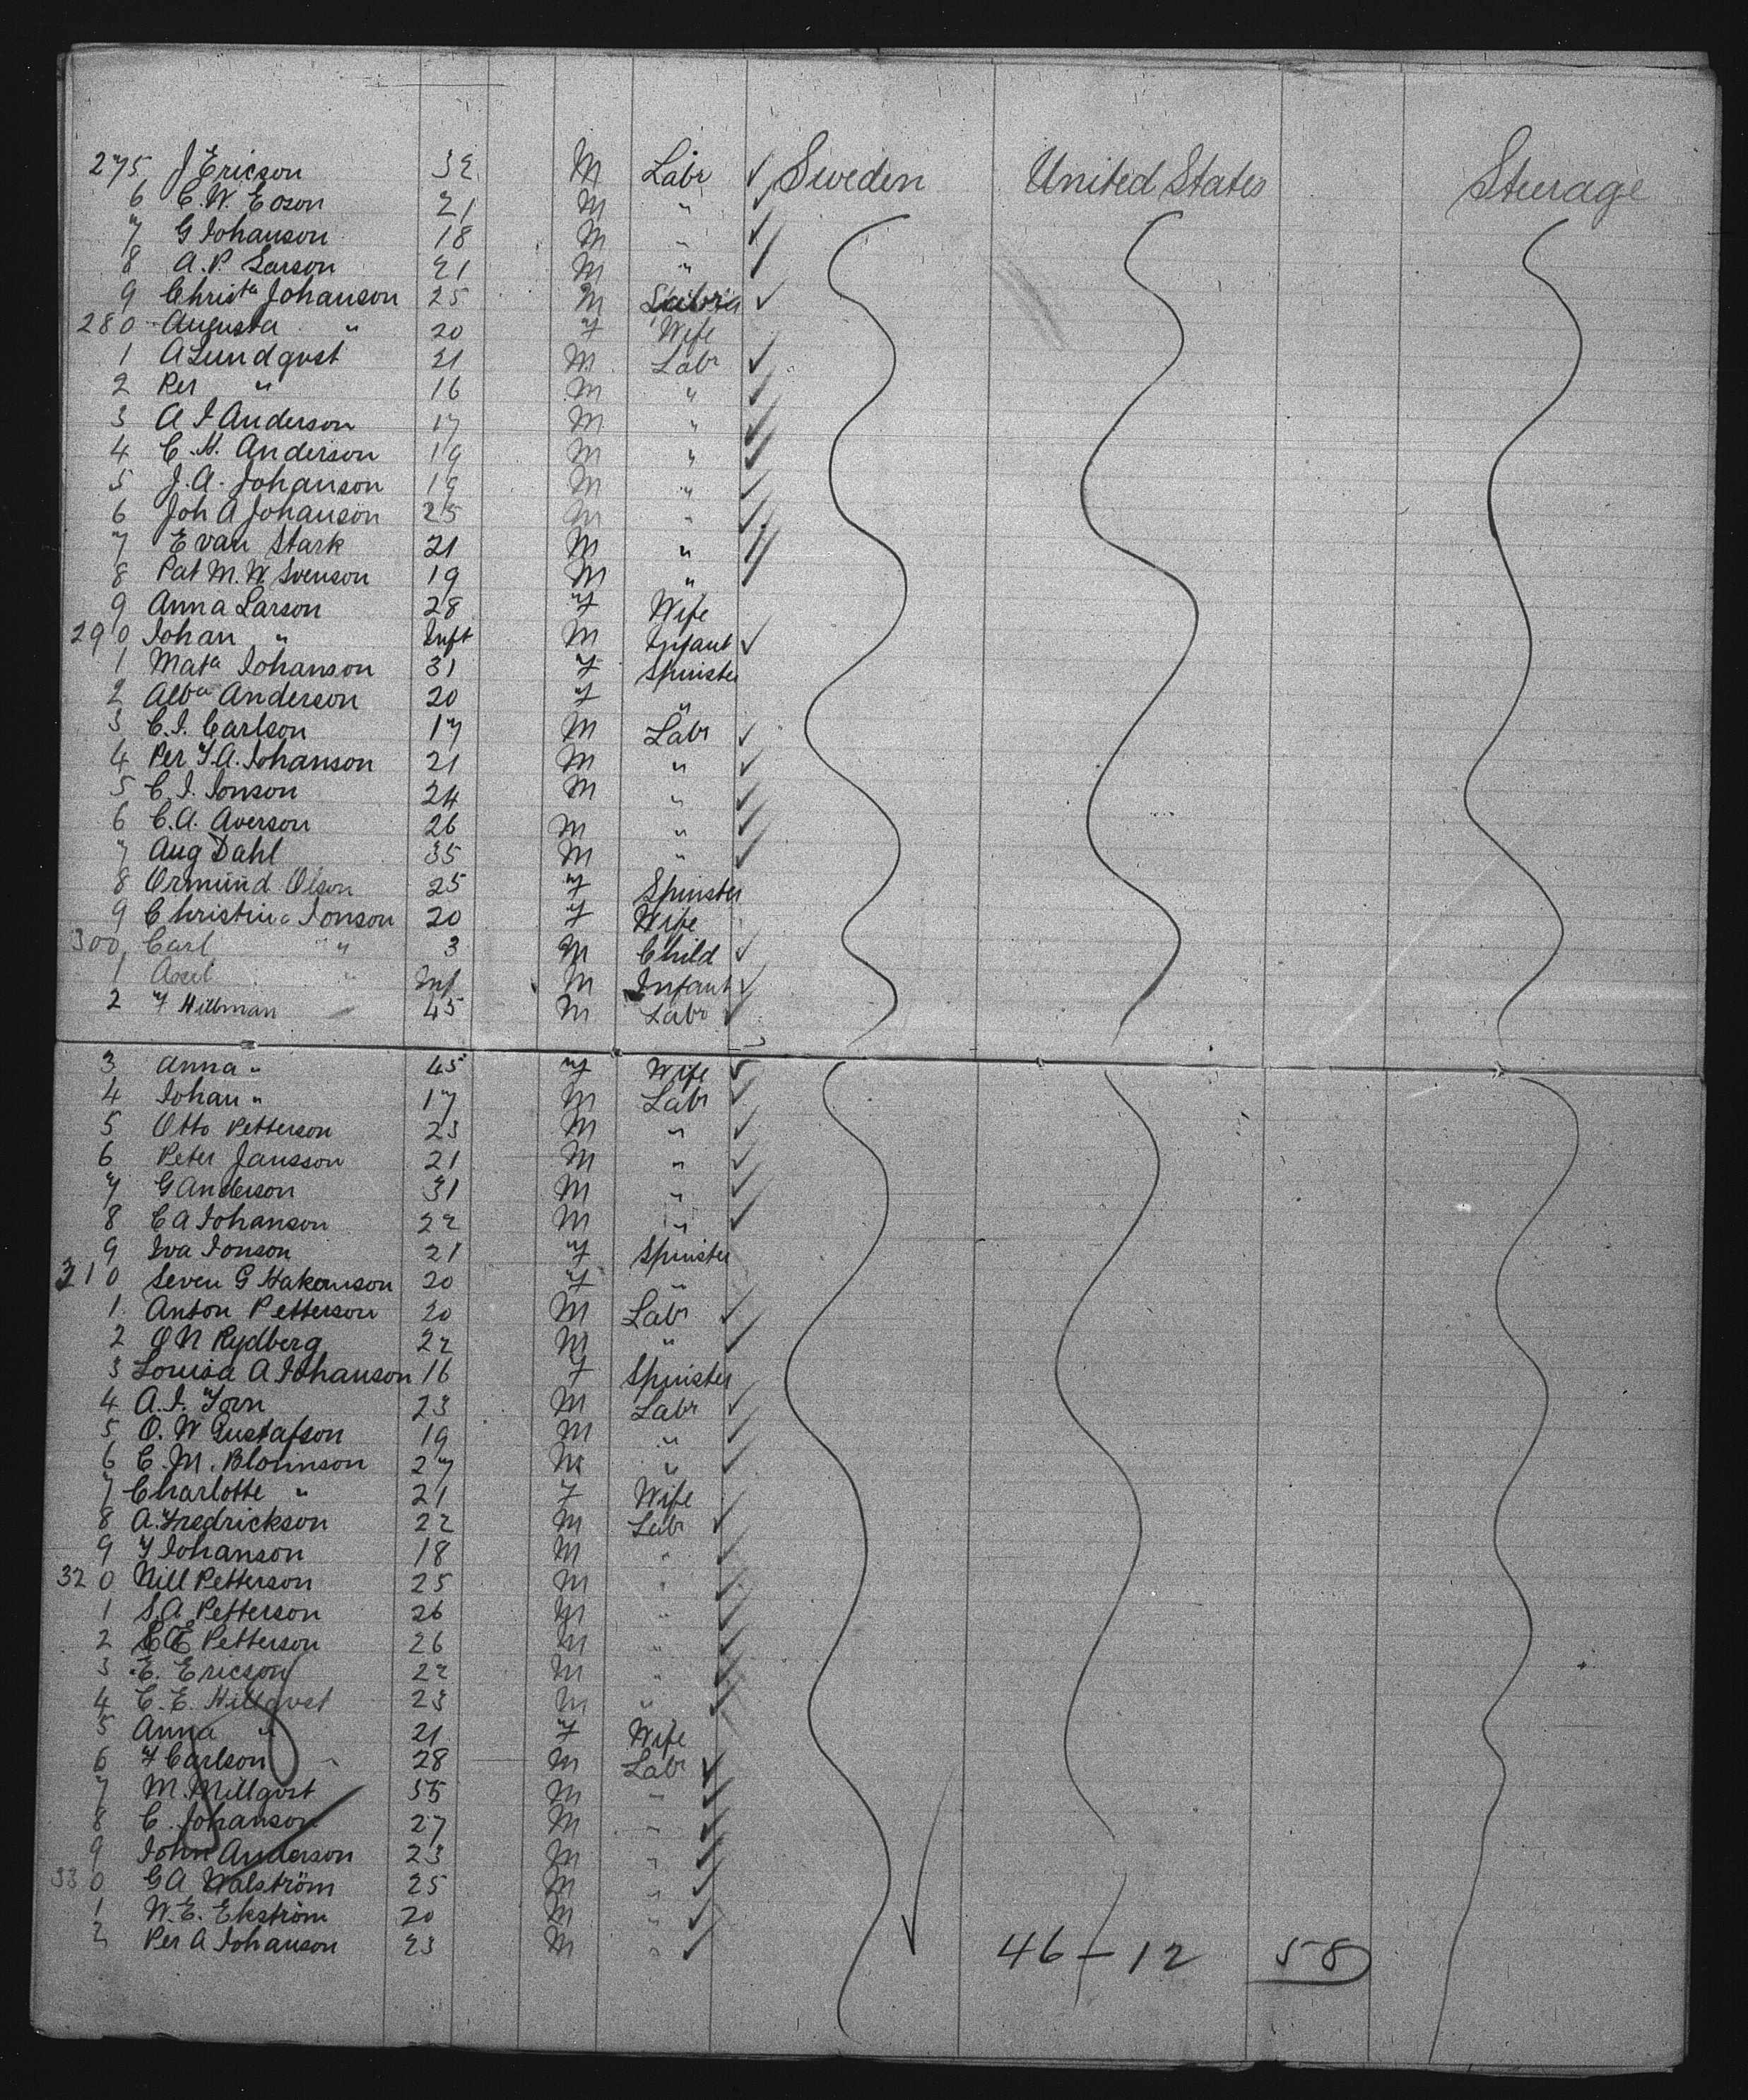 275 J Ericson 32 M Labr ✓ Sweden United States Steerage
6 C. W. Eoson 21 M " ✓
7 G Johanson 18 M " ✓
8 A. P. Larson 21 M "
9 Christa Johanson 25 M Labr ✓
280 Augusta " 20 f Wife
1 A Lundqvst 21 M Labr ✓
2 Per " 16 M " ✓
3 A I Anderson 17 M " ✓
4 C. H. Anderson 19 M " ✓
5 J. A. Johanson 19 M " ✓
6 Joh A Johanson 25 M " ✓
7 Evan Stark 21 M "
8 Pat M. W. Svenson 19 M "
9 Anna Larson 28 f Wife
290 Johan " Inft M Infant ✓
1 Mata Johanson 31 f Spinster
2 Alba Anderson 20 f "
3 C. I. Carlson 17 M Labr ✓
4 Per F A. Johanson 21 M " ✓
5 C. J. Jonson 24 M " ✓
6 C. A. Averson 26 M " ✓
7 Aug Dahl 35 M " ✓
8 Ormund Olson 25 f Spinster
9 Christina Jonson 20 f Wife
300 Carl " 3 M Child ✓
1 Axel " Inf M Infant ✓
2 F Hillman 45 M Labr ✓
3 Anna " 45 f Wife ✓
4 Johan " 17 M Labr ✓
5 Otto Petterson 23 M " ✓
6 Peter Jansson 21 M " ✓
7 G Anderson 31 M " ✓
8 C A Johanson 22 M " ✓
9 Iva Jonson 21 f Spinster
310 Seven G Hakanson 20 f "
1 Anton Petterson 20 M Labr ✓
2 O N Rydberg 22 M " ✓
3 Louisa A Johanson 16 f Spinster
4 A. I. Forn 23 M Labr ✓
5 O. W Gustafson 19 M " ✓
6 C. M. Blomnson 27 M " ✓
7 Charlotte " 21 f Wife
8 A. Fredrickson 22 M Labr ✓
9 F Johanson 18 M " ✓
320 Nill Petterson 25 M " ✓
1 S. A Petterson 26 M " ✓
2 C E Petterson 26 M " ✓
3 E. Ericson 22 M " ✓
4 C. E. Hillqvst 23 M " ✓
5 Anna " 21 f Wife
6 F Carlson 28 M Labr ✓
7 M. Millqvst 35 M " ✓
8 C. Johanson 27 M " ✓
9 John Anderson 23 M " ✓
330 G A Walström 25 M " ✓
1 W. E. Ekström 20 M " ✓
2 Per A Johanson 23 M " ✓
46 - 12 58